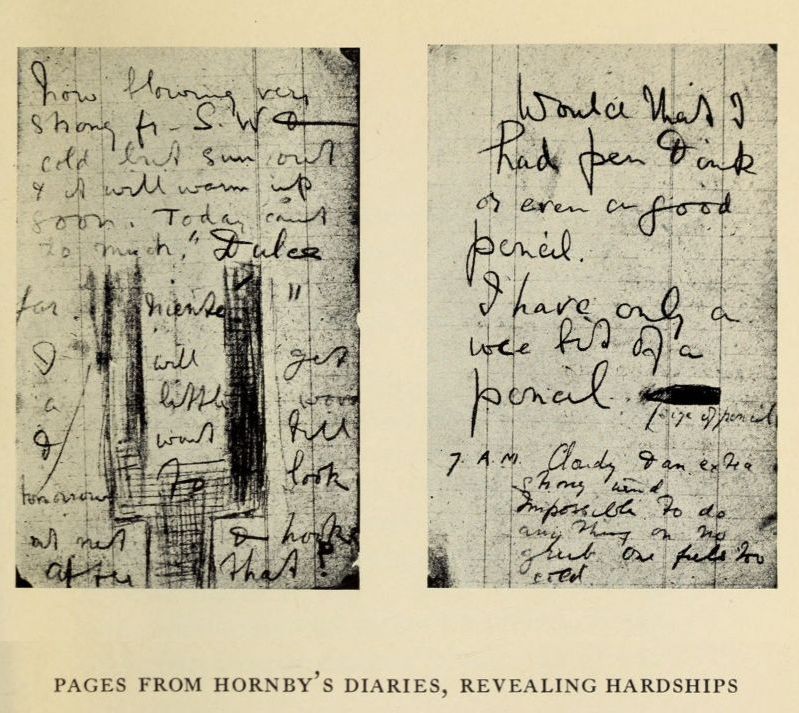 now blowing very
strong fr - S.W &
cold but sun out
& it will warm up
soon. Today can't
do much. "Dulce
far niente "
I will get
a little wood
& wait till
tomorrow to look
at net & hooks
after that?
Would that I
had pen & ink
or even a good
pencil.
I have only a
wee bit of a
pencil.
size of pencil
7 A.M. Cloudy & an extra
strong wind
Impossible to do
any thing on no
grub one feels too
cold.
PAGES FROM HORNBY'S DIARIES, REVEALING HARDSHIPS